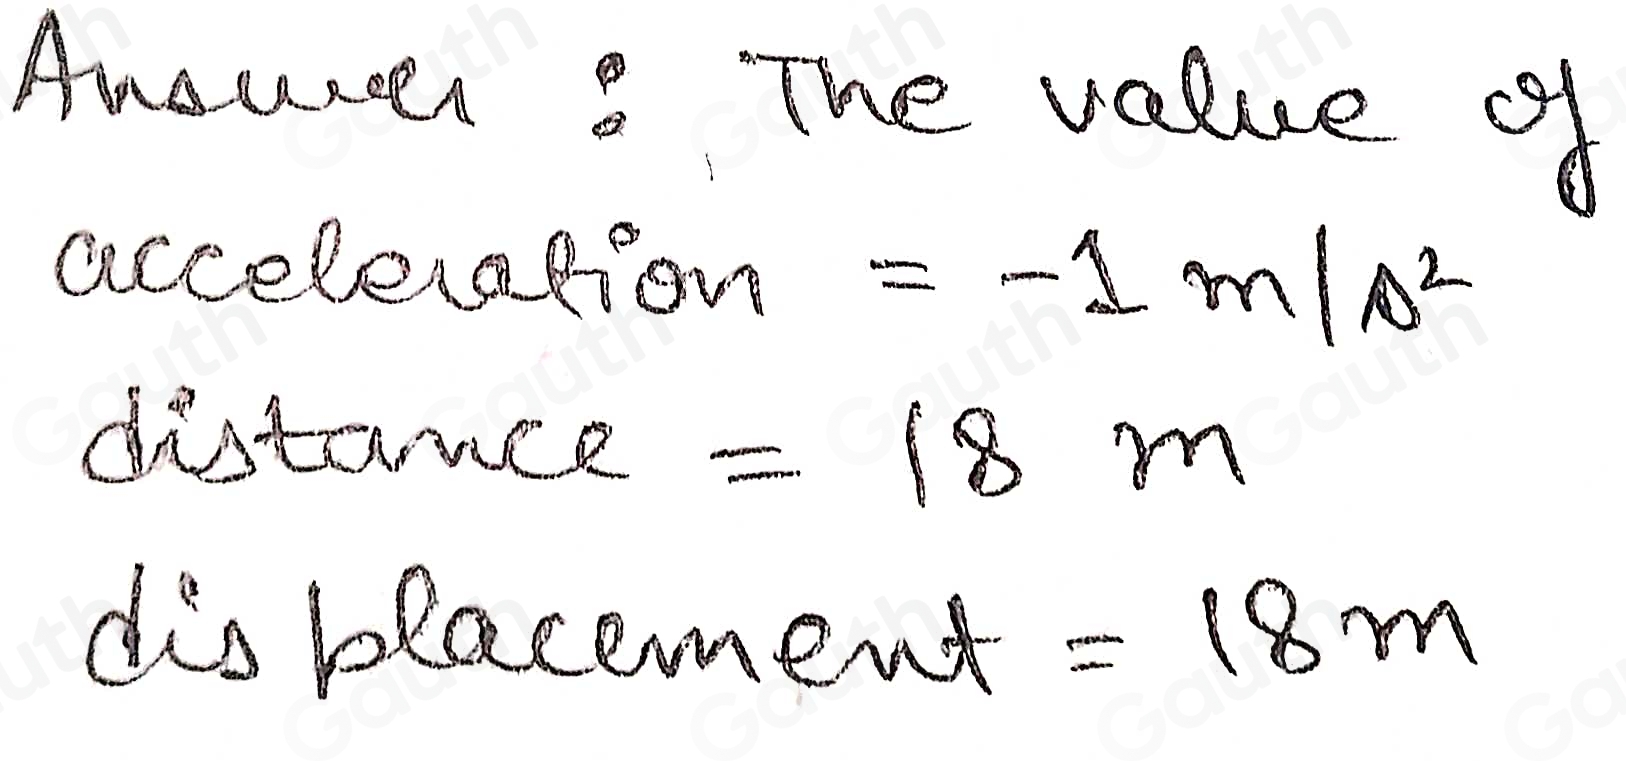 Answer : The value of
acceleration = -1 m/s²
distance = 18 m
displacement = 18m